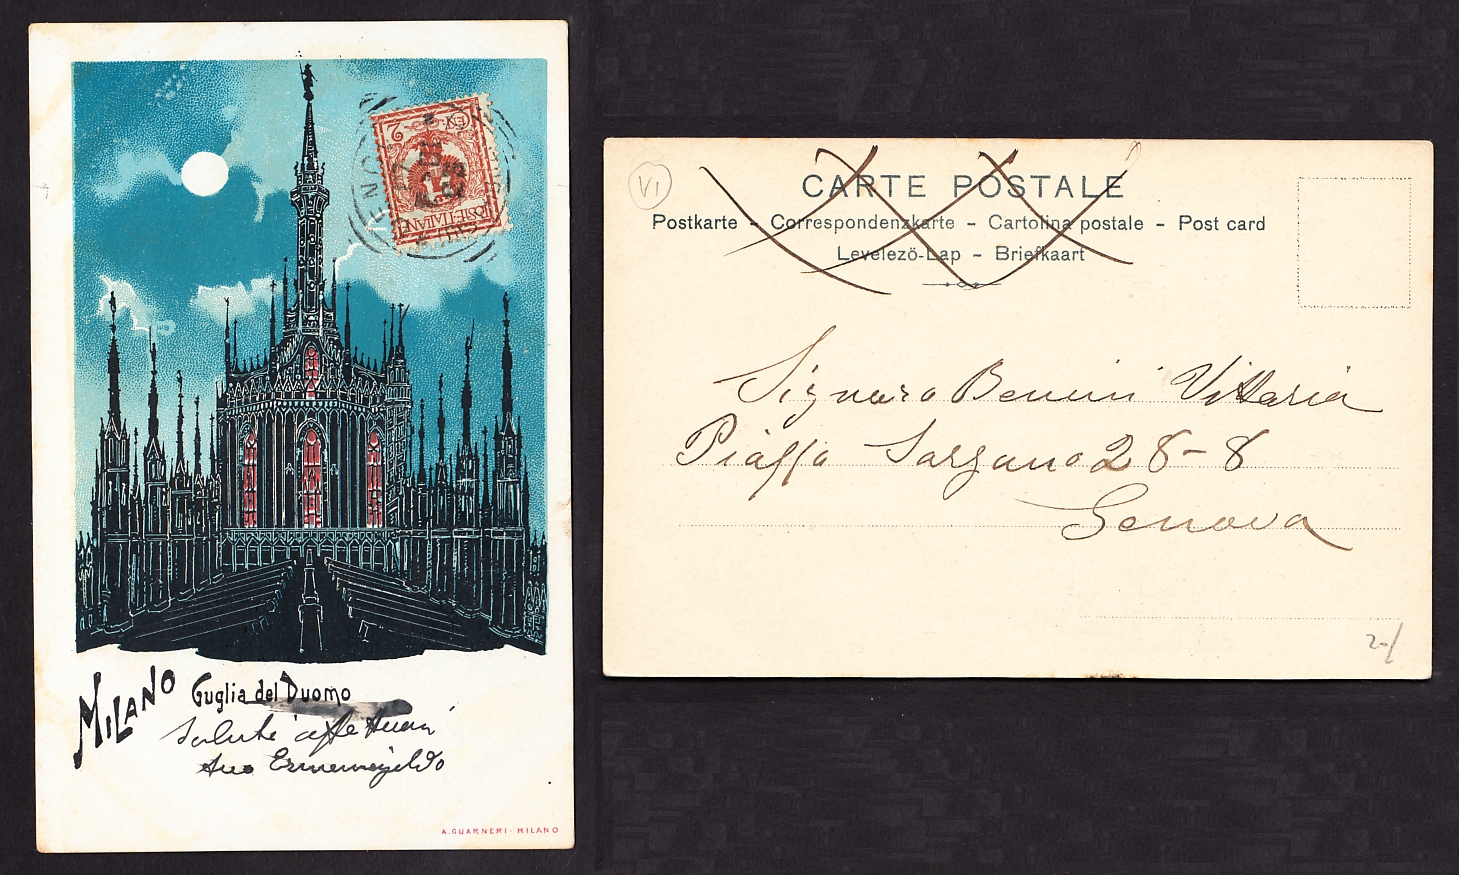 2
CEN.
POSTE·ITALIANE
MILANO Guglia del Duomo
Saluti affettuosi
tuo Ermenegildo
A. GUARNERI - MILANO
VI
CARTE POSTALE
Postkarte - Correspondenzkarte - Cartolina postale - Post card
Levelezö-Lap - Briefkaart
Signora Benini Vittoria
Piazza Sarzano 28-8
Genova